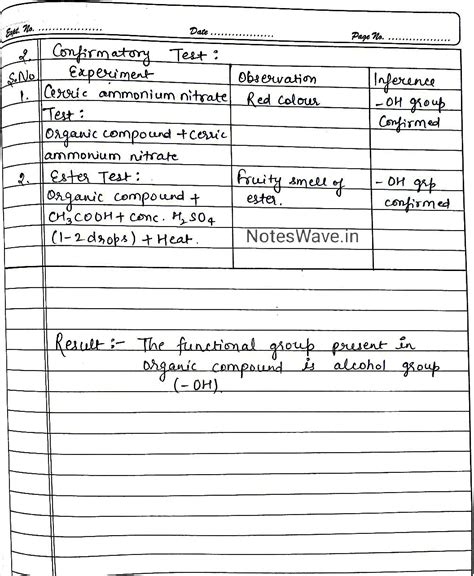 Expt. No. ..................
Date ..................
Page No. ..................
2. Confirmatory Test :
S.No Experiment Observation Inference
1. Cerric ammonium nitrate Red colour - OH group
Test : Confirmed
Organic compound + Cerric
ammonium nitrate
2. Ester Test : Fruity smell of - OH grp
Organic compound + ester. confirmed
CH3COOH + conc. H2SO4
(1-2 drops) + Heat. NotesWave.in
Result :- The functional group present in
organic compound is alcohol group
(- OH).